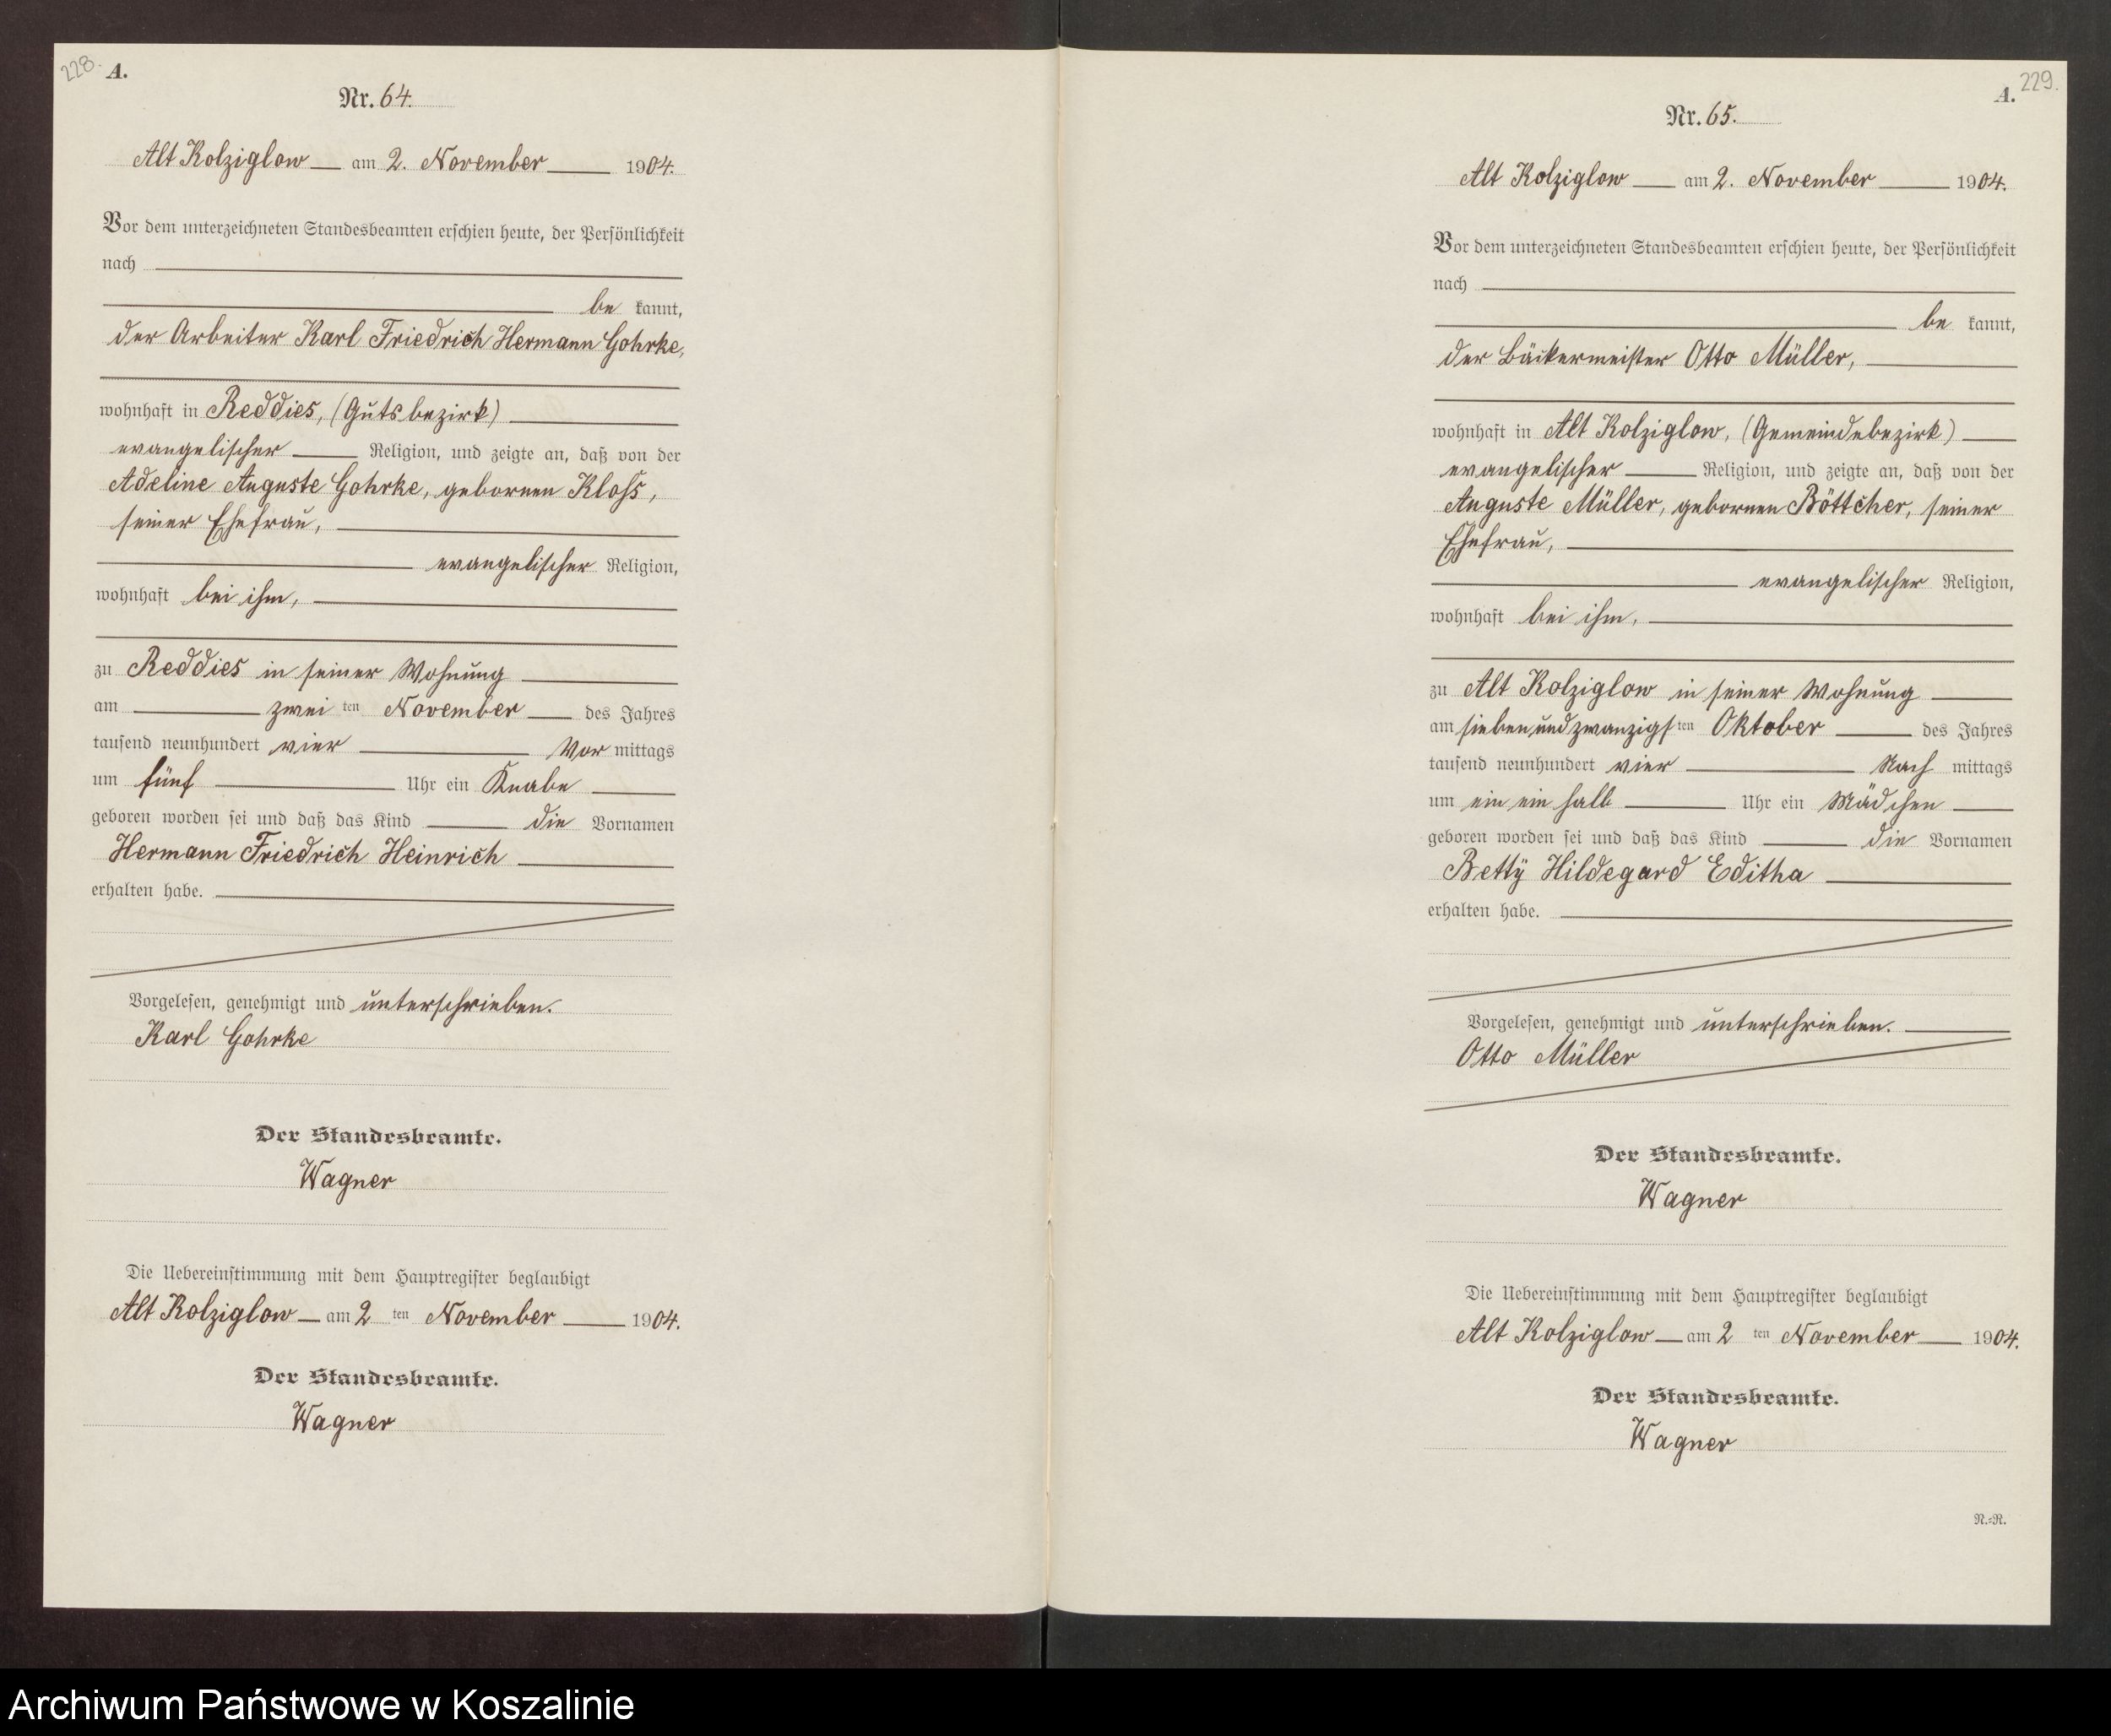 228.
A.
Nr. 64.
Alt Kolziglow am 2. November 1904.
Vor dem unterzeichneten Standesbeamten erschien heute, der Persönlichkeit
nach
be kannt,
der Arbeiter Karl Friedrich Hermann Gohrke,
wohnhaft in Reddies, (Gutsbezirk)
evangelischer Religion, und zeigte an, daß von der
Adeline Auguste Gohrke, gebornen Kloss,
seiner Ehefrau,
evangelischer Religion,
wohnhaft bei ihm,
zu Reddies in seiner Wohnung
am zwei ten November des Jahres
tausend neunhundert vier Vor mittags
um fünf Uhr ein Knabe
geboren worden sei und daß das Kind die Vornamen
Hermann Friedrich Heinrich
erhalten habe.
Vorgelesen, genehmigt und unterschrieben.
Karl Gohrke
Der Standesbeamte.
Wagner
Die Uebereinstimmung mit dem Hauptregister beglaubigt
Alt Kolziglow am 2 ten November 1904.
Der Standesbeamte.
Wagner
A.
229.
Nr. 65.
Alt Kolziglow am 2. November 1904.
Vor dem unterzeichneten Standesbeamten erschien heute, der Persönlichkeit
nach
be kannt,
der Bäckermeister Otto Müller,
wohnhaft in Alt Kolziglow, (Gemeindebezirk)
evangelischer Religion, und zeigte an, daß von der
Auguste Müller, gebornen Böttcher, seiner
Ehefrau,
evangelischer Religion,
wohnhaft bei ihm,
zu Alt Kolziglow in seiner Wohnung
am siebenundzwanzigsten Oktober des Jahres
tausend neunhundert vier Nach mittags
um ein ein halb Uhr ein Mädchen
geboren worden sei und daß das Kind die Vornamen
Betty Hildegard Editha
erhalten habe.
Vorgelesen, genehmigt und unterschrieben.
Otto Müller
Der Standesbeamte.
Wagner
Die Uebereinstimmung mit dem Hauptregister beglaubigt
Alt Kolziglow am 2 ten November 1904.
Der Standesbeamte.
Wagner
N.-R.
Archiwum Państwowe w Koszalinie